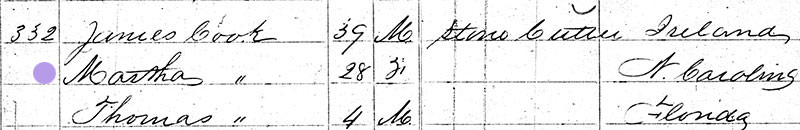 332 James Cook 39 M Stone Cutter Ireland
Martha " 28 F N. Carolina
Thomas " 4 M Florida